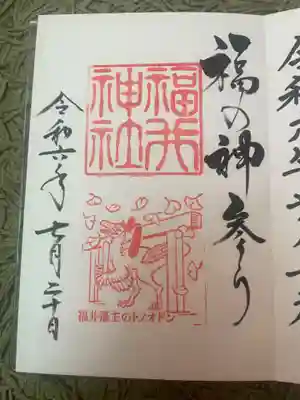 福の神参り
福井
神社
福井藩主のトノオドン
令和六年 七月二十日